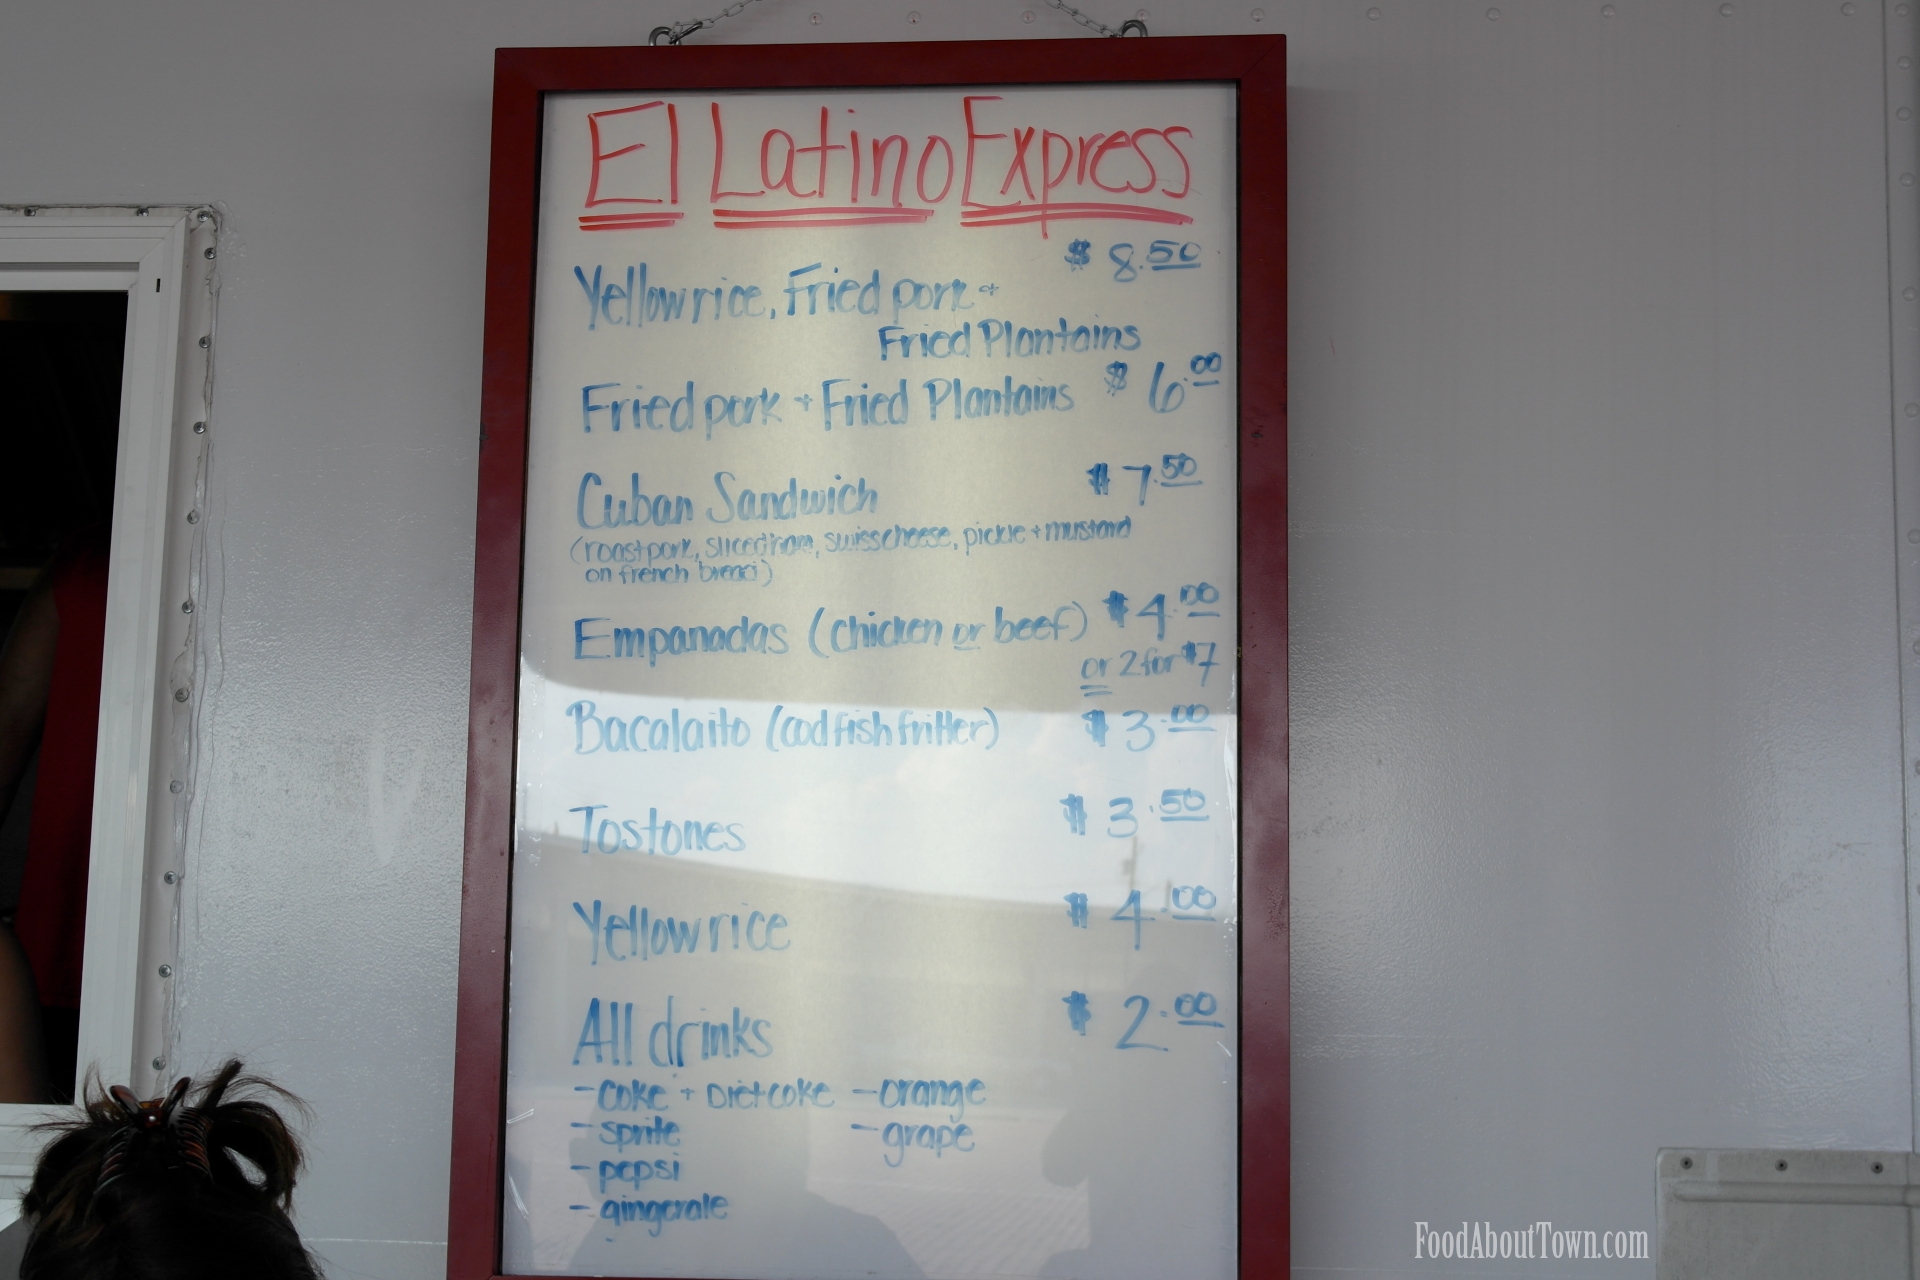 El Latino Express
$ 8.50
Yellow rice, Fried pork +
Fried Plantains
Fried pork + Fried Plantains $ 6.00
Cuban Sandwich $ 7.50
(roast pork, sliced ham, swiss cheese, pickle + mustard
on french bread)
Empanadas (chicken or beef) $ 4.00
or 2 for $7
Bacalaito (cod fish fritter) $ 3.00
Tostones $ 3.50
Yellow rice $ 4.00
All drinks $ 2.00
- coke + Diet coke - orange
- sprite - grape
- pepsi
- gingerale
FoodAboutTown.com